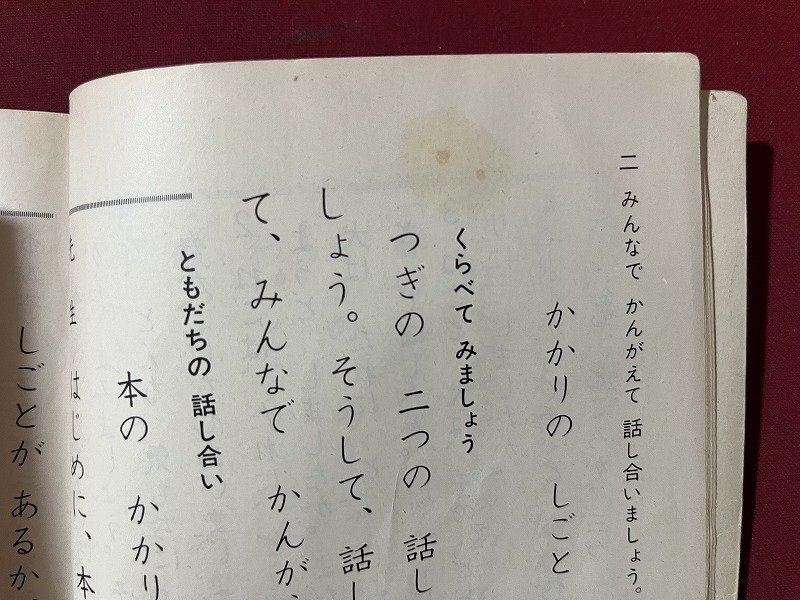 二 みんなで かんがえて 話し合いましょう。
かかりの しごと
くらべて みましょう
つぎの 二つの 話し
しょう。そうして、話し
て、みんなで かんが
ともだちの 話し合い
本の かかり
先生 はじめに、本
しごとが あるか